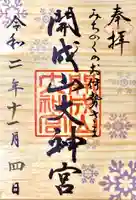 奉拝
みちのくのお伊勢さま
開成山大神宮
令和二年十一月四日